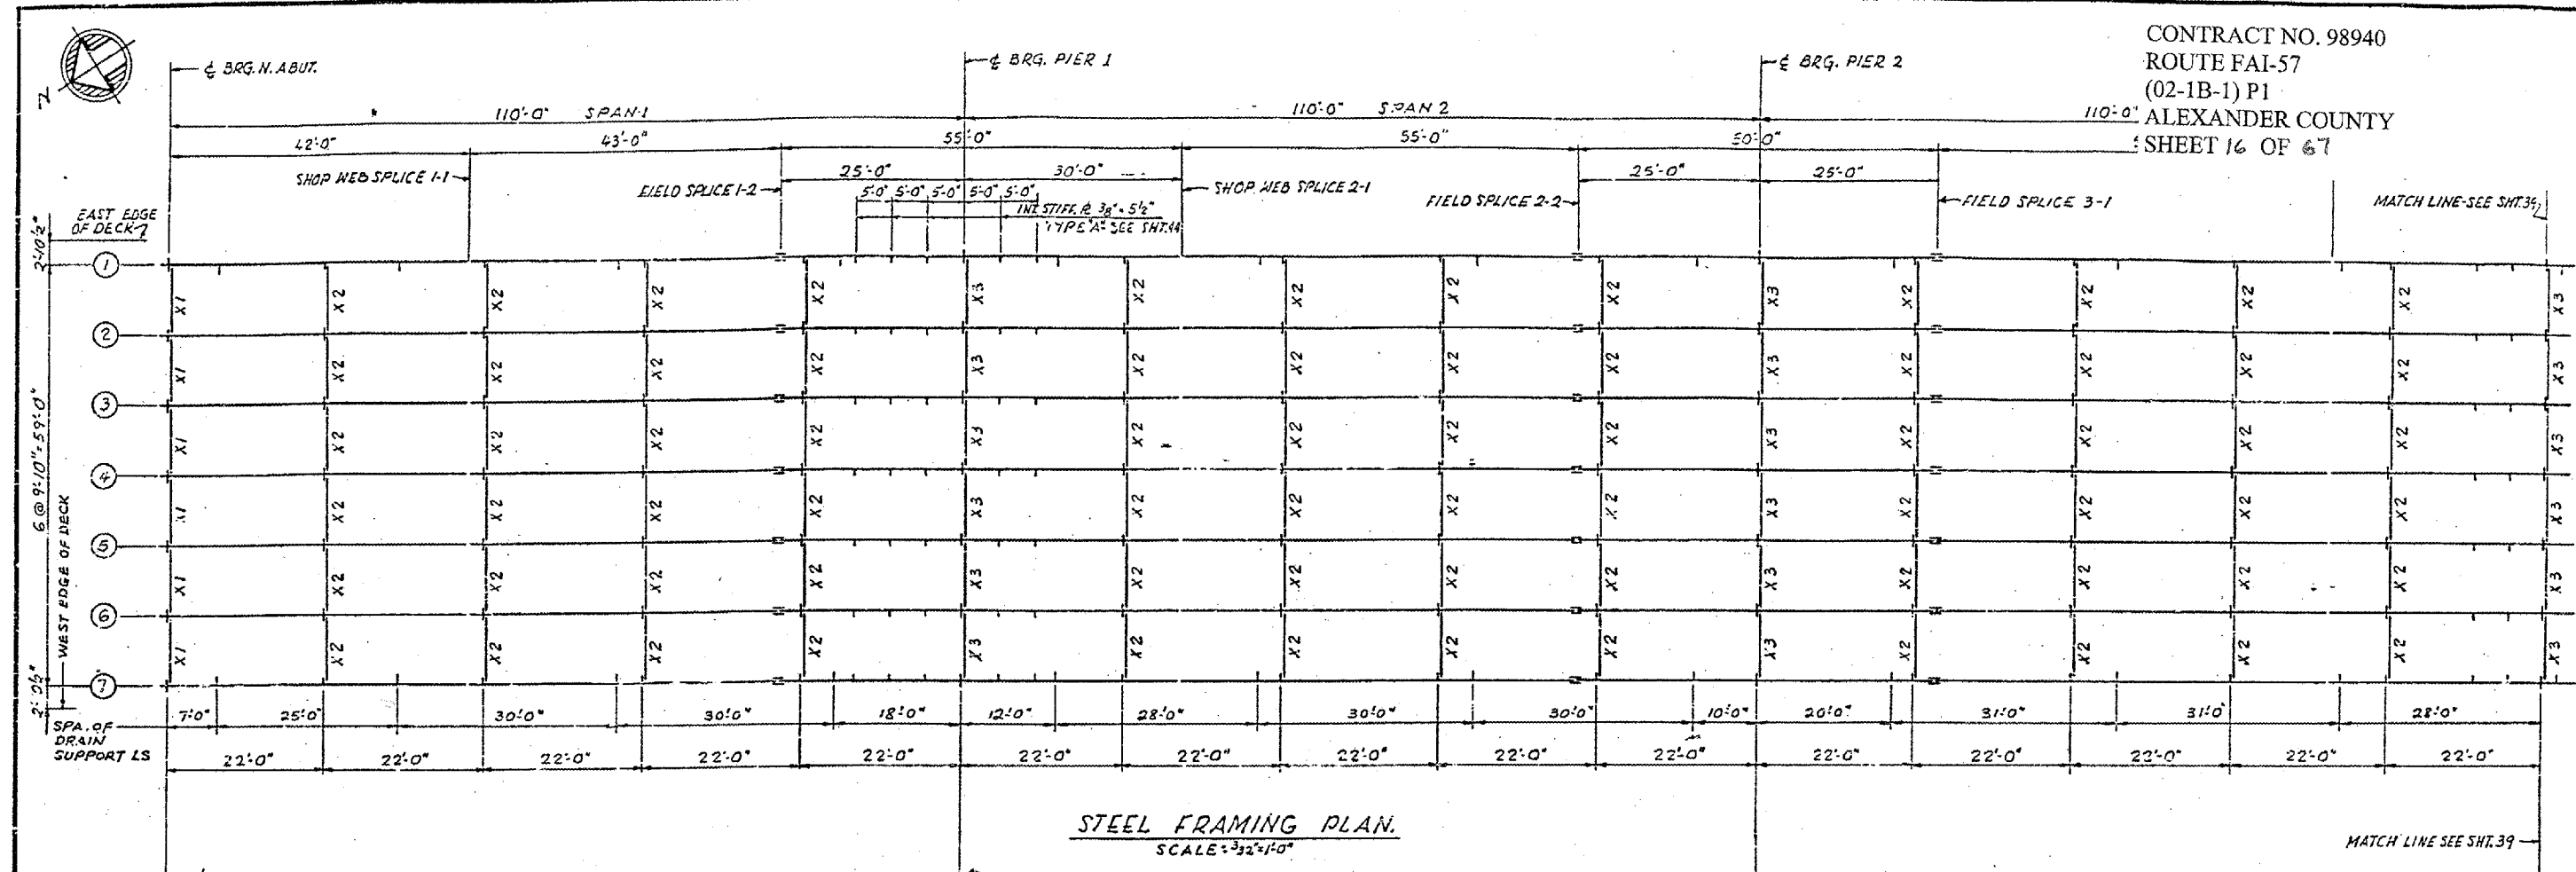 CONTRACT NO. 98940
ROUTE FAI-57
(02-1B-1) P1
ALEXANDER COUNTY
SHEET 16 OF 67
℄ BRG. N. ABUT.
℄ BRG. PIER 1
℄ BRG. PIER 2
110'-0" SPAN 1
110'-0" SPAN 2
110'-0"
42'-0" 43'-0" 55'-0" 55'-0" 50'-0"
25'-0" 30'-0" 25'-0" 25'-0"
SHOP WEB SPLICE 1-1
FIELD SPLICE 1-2
5'-0" 5'-0" 5'-0" 5'-0" 5'-0"
SHOP WEB SPLICE 2-1
FIELD SPLICE 2-2
FIELD SPLICE 3-1
MATCH LINE-SEE SHT.39
INT. STIFF. ℞ 3/8" × 5 1/2"
TYPE "A" SEE SHT.44
EAST EDGE
OF DECK
2'-10 1/2"
1
X1 X2 X2 X2 X2 X3 X2 X2 X2 X2 X3 X2 X2 X2 X2 X3
2
X1 X2 X2 X2 X2 X3 X2 X2 X2 X2 X3 X2 X2 X2 X2 X3
3
X1 X2 X2 X2 X2 X3 X2 X2 X2 X2 X3 X2 X2 X2 X2 X3
4
X1 X2 X2 X2 X2 X3 X2 X2 X2 X2 X3 X2 X2 X2 X2 X3
5
X1 X2 X2 X2 X2 X3 X2 X2 X2 X2 X3 X2 X2 X2 X2 X3
6
X1 X2 X2 X2 X2 X3 X2 X2 X2 X2 X3 X2 X2 X2 X2 X3
7
6 @ 9'-10" = 59'-0"
WEST EDGE OF DECK
SPA. OF
DRAIN
SUPPORT LS
7'-0" 25'-0" 30'-0" 30'-0" 18'-0" 12'-0" 28'-0" 30'-0" 30'-0" 10'-0" 20'-0" 31'-0" 31'-0" 28'-0"
22'-0" 22'-0" 22'-0" 22'-0" 22'-0" 22'-0" 22'-0" 22'-0" 22'-0" 22'-0" 22'-0" 22'-0" 22'-0" 22'-0" 22'-0"
STEEL FRAMING PLAN.
SCALE: 3/32"=1'-0"
MATCH LINE SEE SHT.39